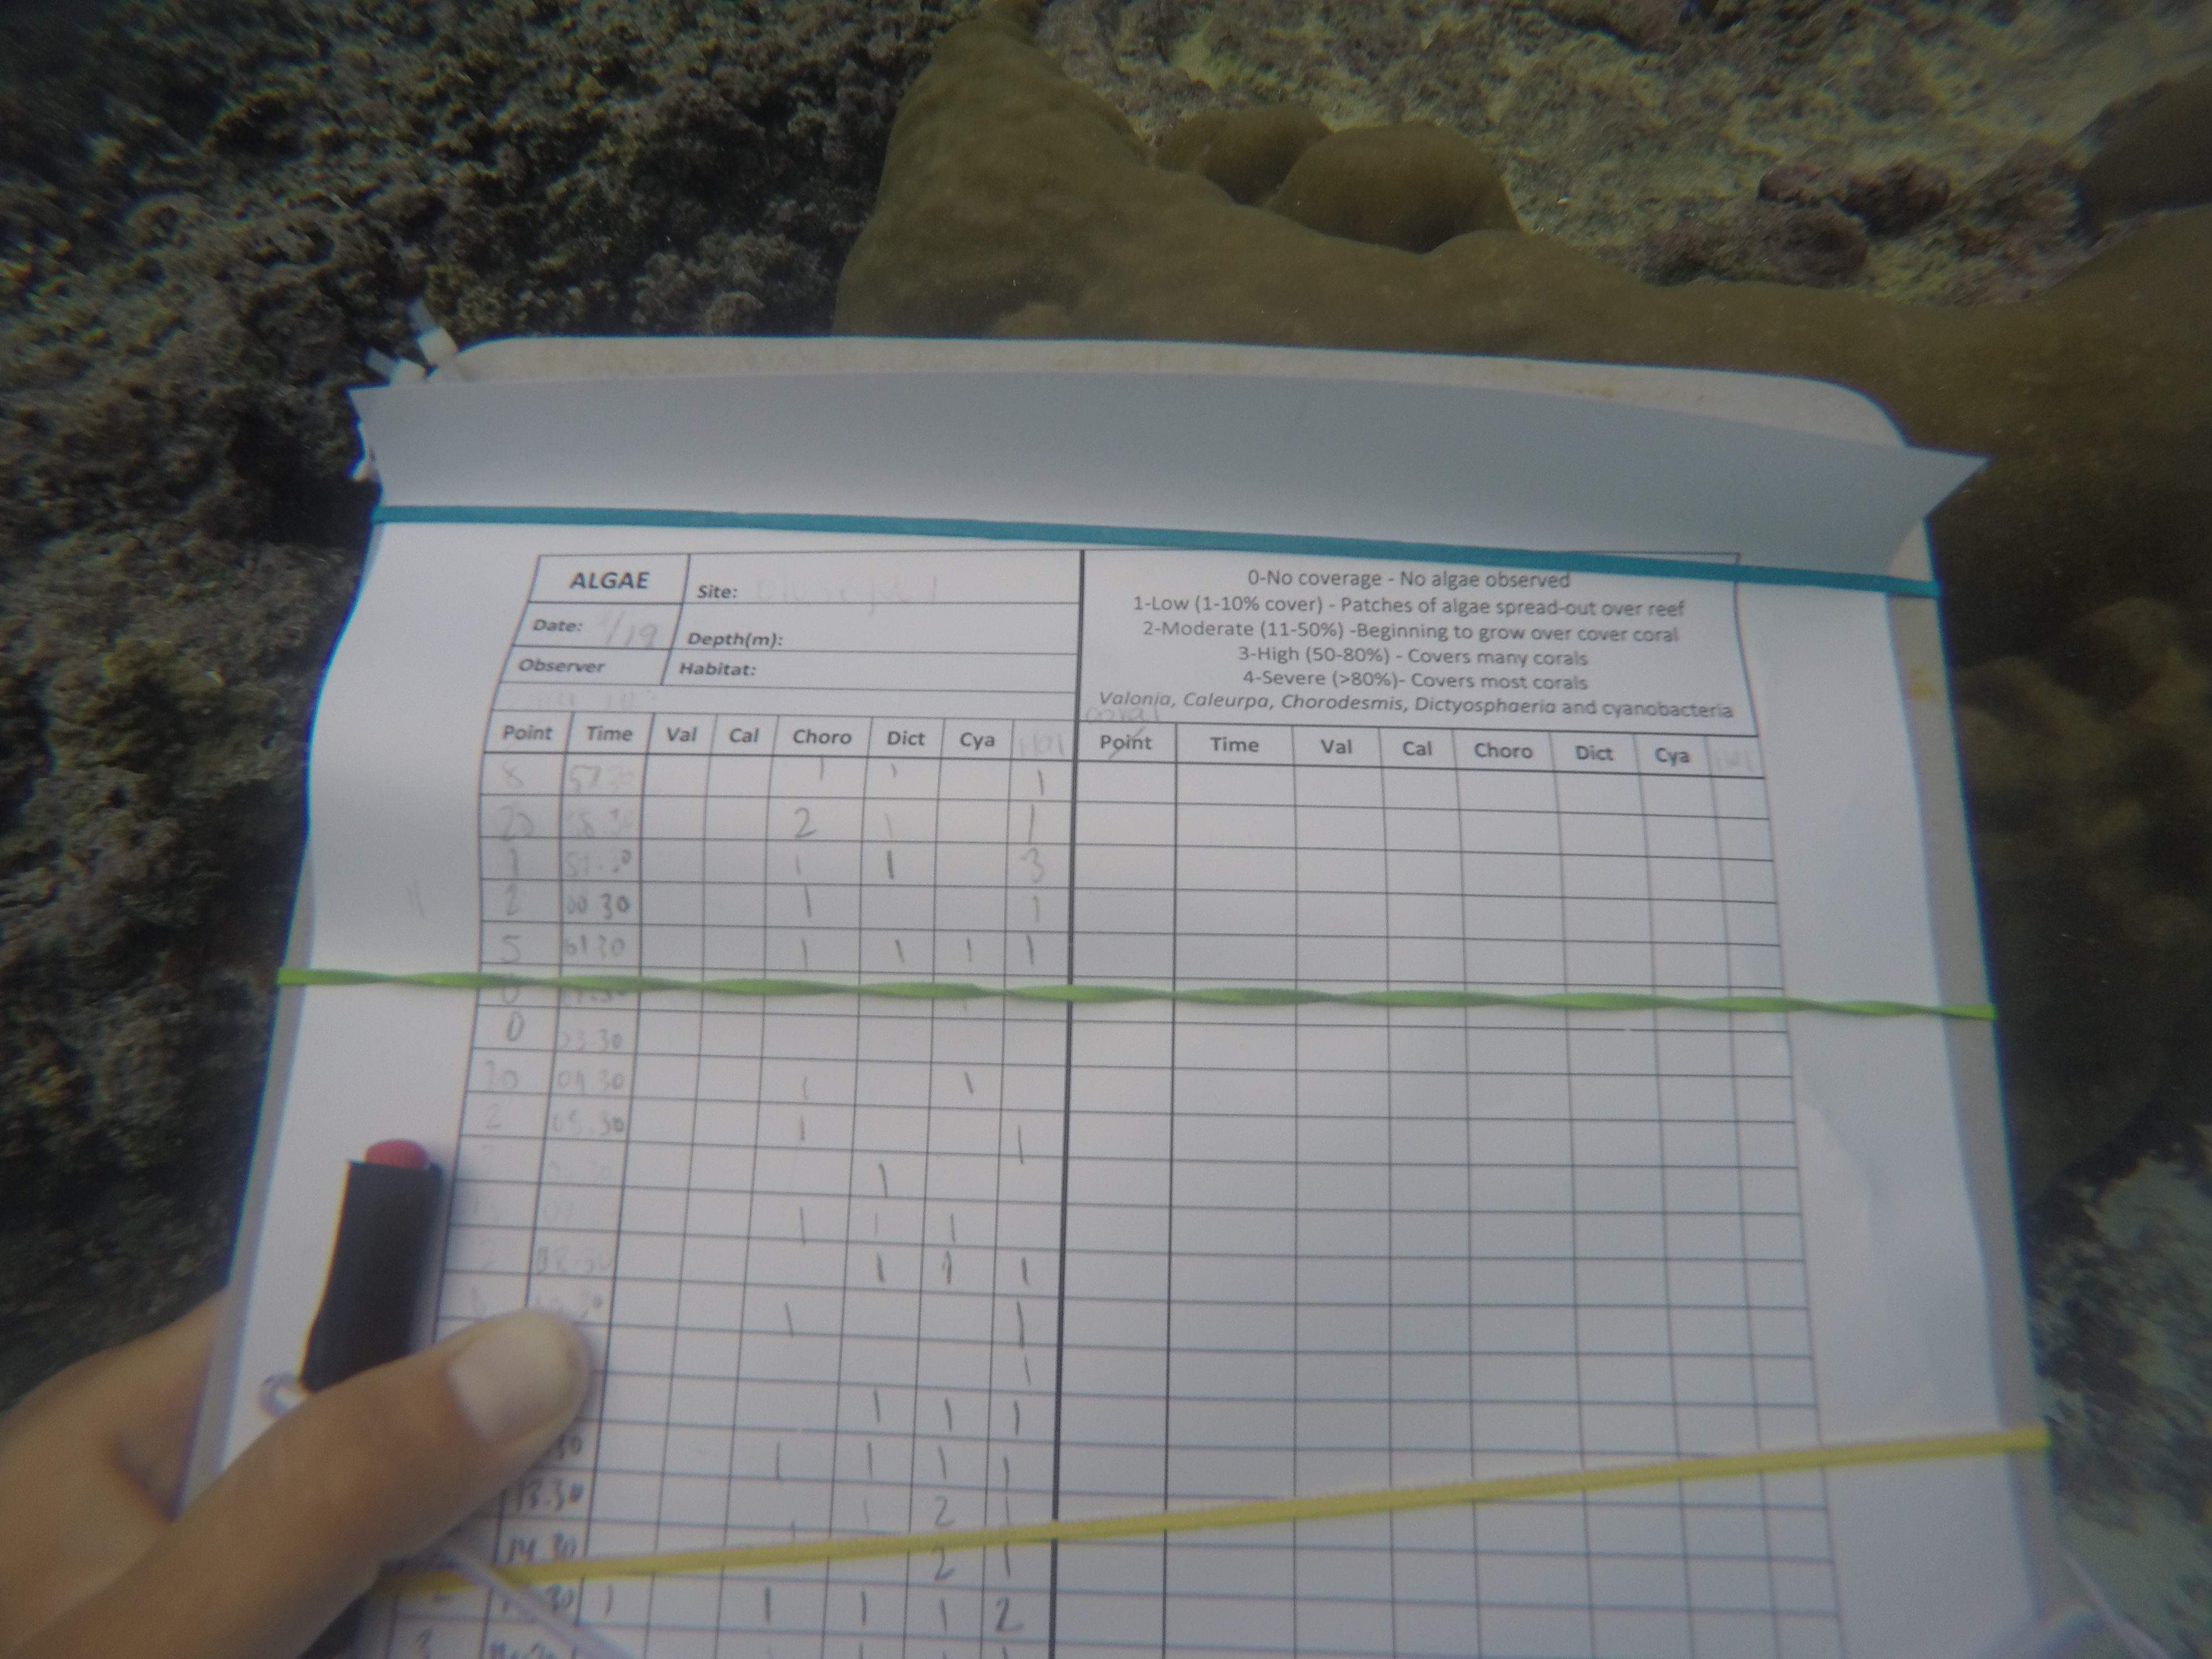 ALGAE
Site: Olosega 1
Date: /19
Depth(m):
Observer
Habitat:
0-No coverage - No algae observed
1-Low (1-10% cover) - Patches of algae spread-out over reef
2-Moderate (11-50%) -Beginning to grow over cover coral
3-High (50-80%) - Covers many corals
4-Severe (>80%)- Covers most corals
Valonia, Caleurpa, Chorodesmis, Dictyosphaeria and cyanobacteria
Point Time Val Cal Choro Dict Cya Hal
coral
Point Time Val Cal Choro Dict Cya Hal
8 57.30 1 1 1
20 58.30 2 1 1
1 59.30 1 1 3
2 00.30 1 1
5 01.30 1 1 1 1
0
0 03.30
10 04.30 1 1
2 05.30 1 1
1
1 1 1
08.30 1 1 1
1 1
1
1 1 1
30 1 1 1 1
13.30 1 2 1
14.30 1 2 1
30 1 1 1 1 2